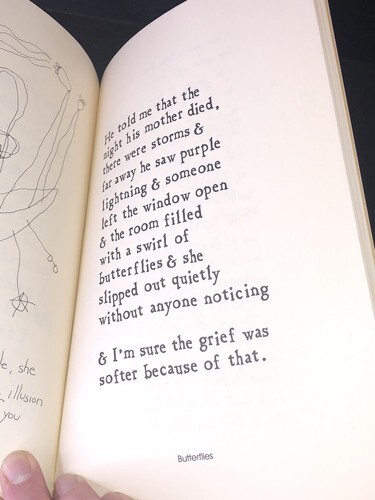 He told me that the
night his mother died,
there were storms &
far away he saw purple
lightning & someone
left the window open
& the room filled
with a swirl of
butterflies & she
slipped out quietly
without anyone noticing
& I'm sure the grief was
softer because of that.
Butterflies
she
illusion
you